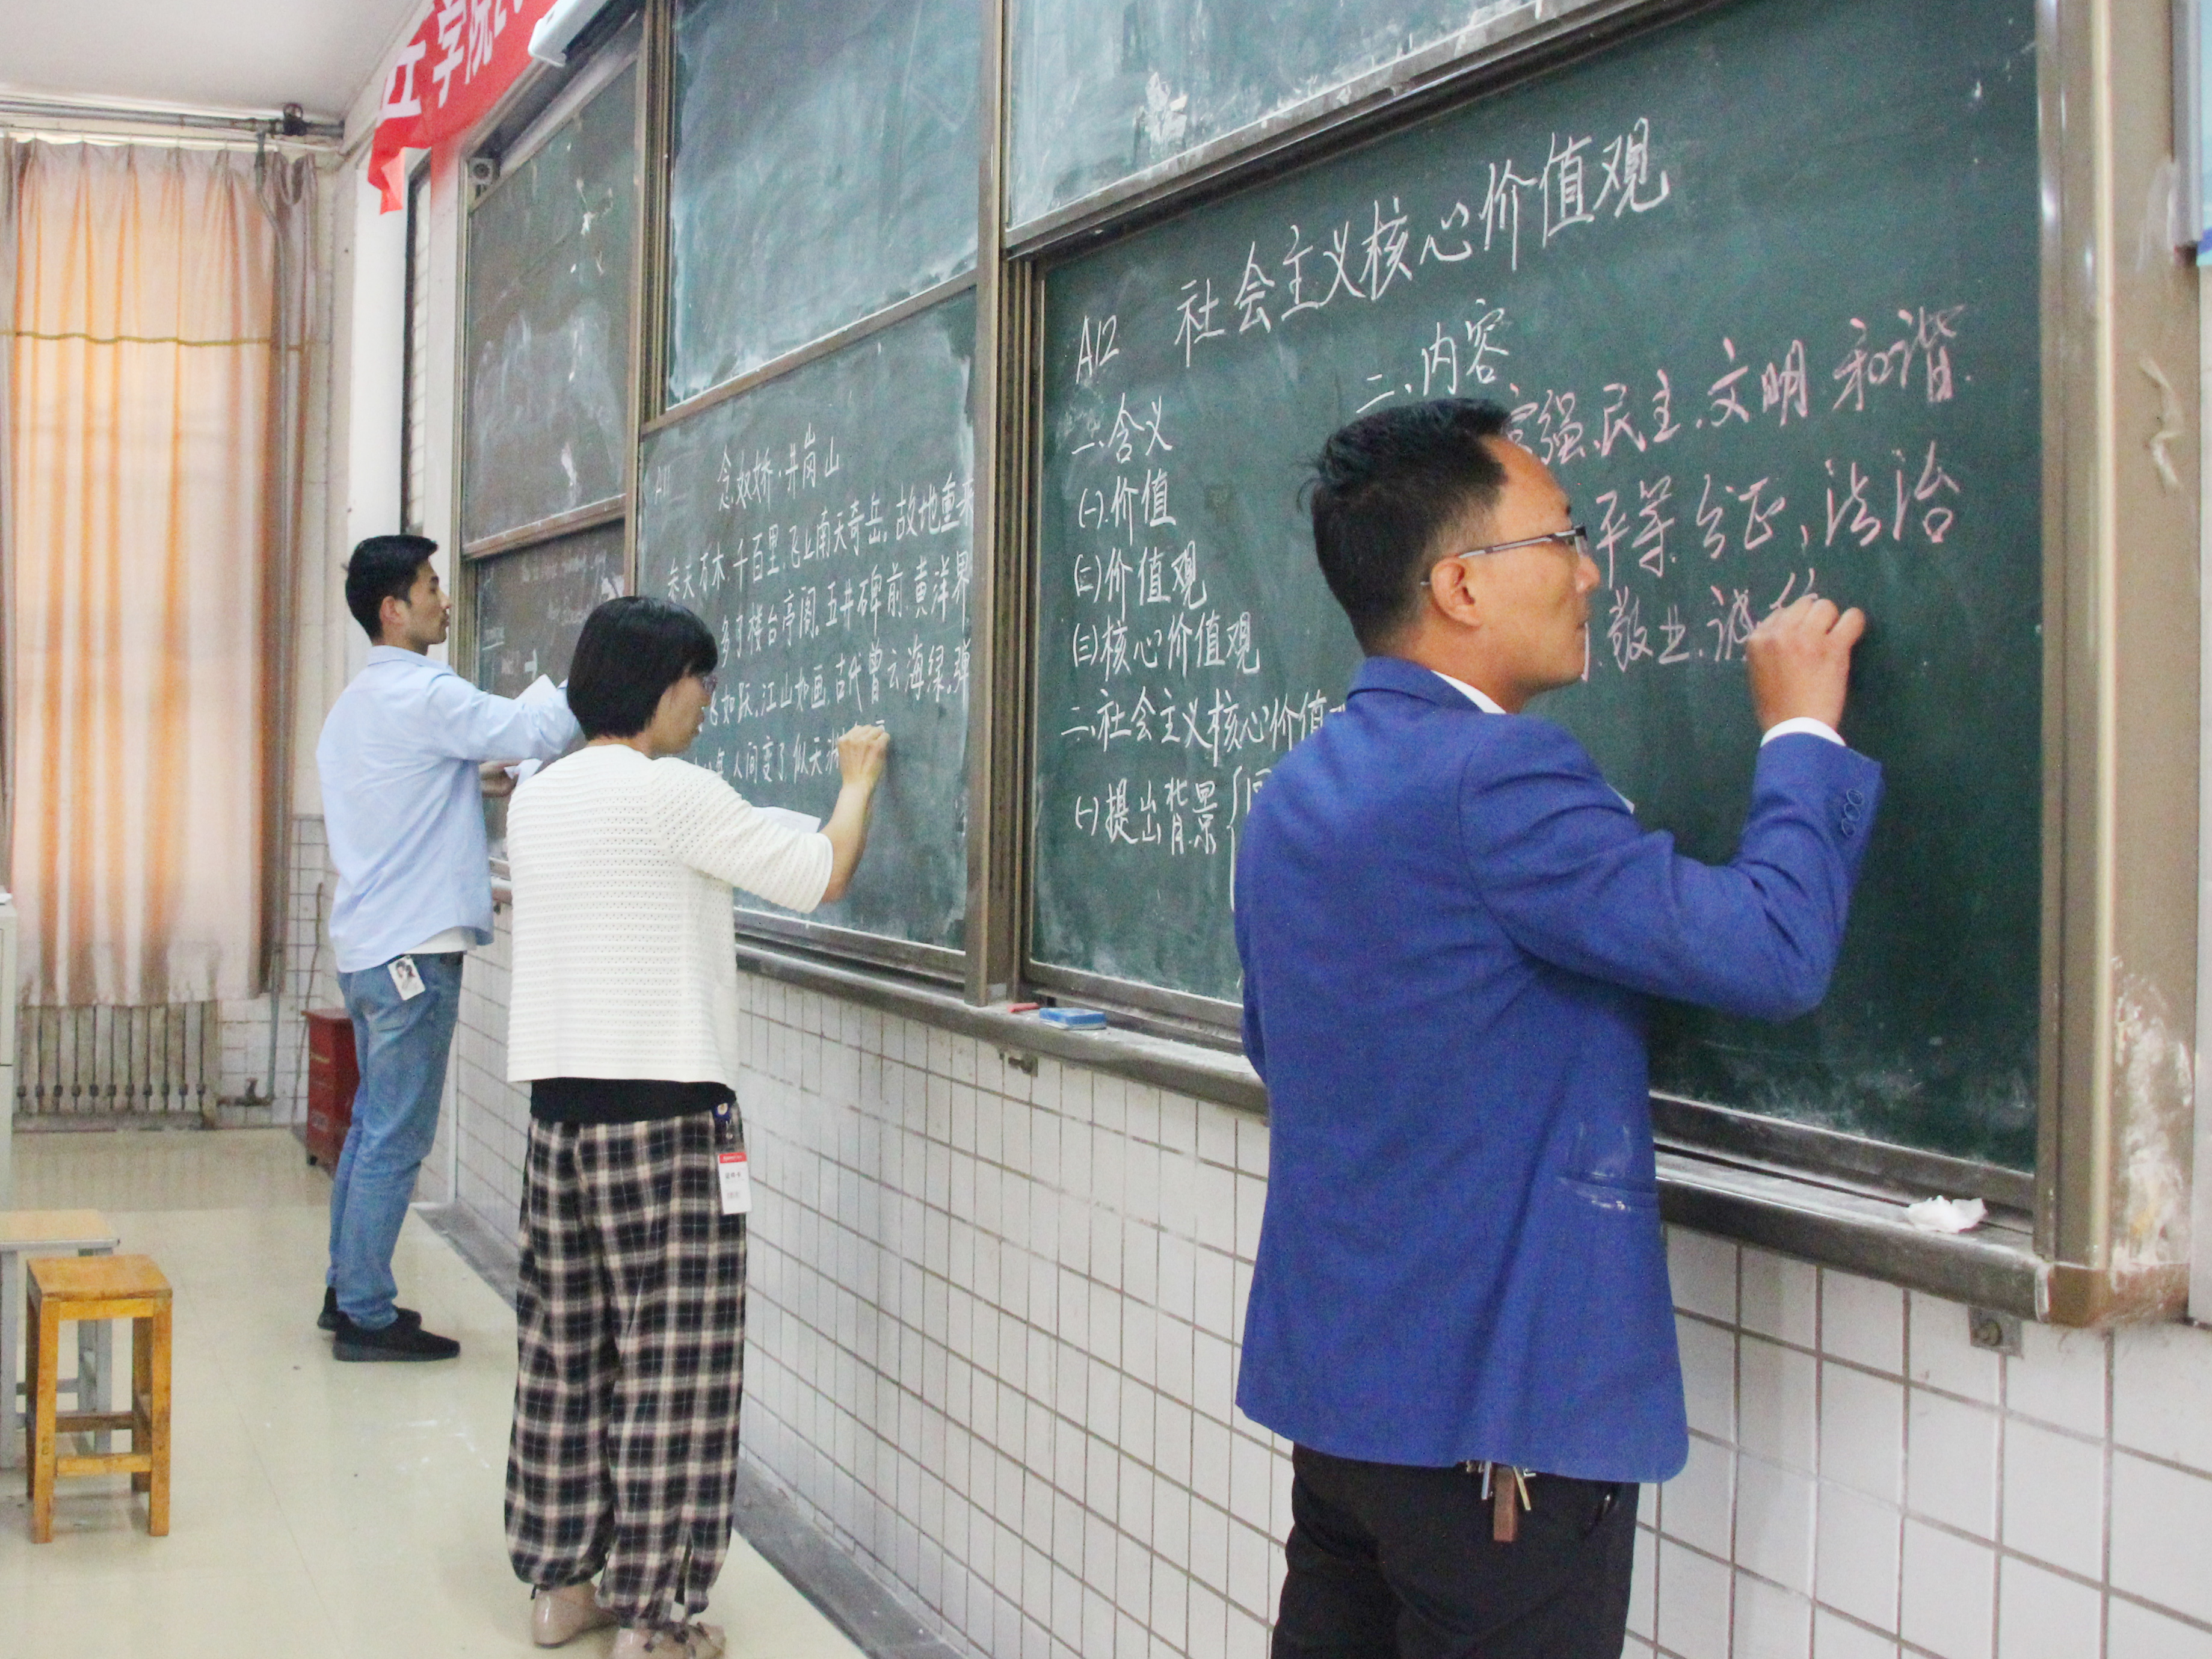 丘学院
A11 念奴娇·井岗山
参天万木.千百里.飞上南天奇岳.故地重来
多了楼台亭阁.五井碑前.黄洋界
飞如跃.江山如画.古代曾云海绿.弹
人间变了.似天渊
A12 社会主义核心价值观
一、含义
(一).价值
(二)价值观
(三)核心价值观
二、社会主义核心价值
(一)提出背景
二、内容
富强.民主.文明.和谐.
平等.公正,法治
敬业.诚信